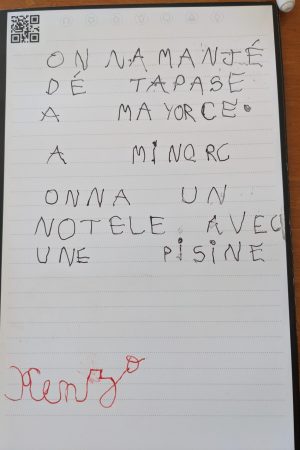 ON NAMANJÉ
DÉ TAPASE
A MAYORCE.
A MINORC
ONNA UN
NOTELE AVEC
UNE PISINE
Kenzo